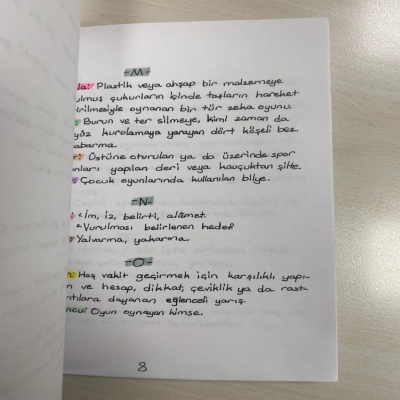 -M-
la: Plastik veya ahşap bir malzemeye
ulmuş çukurların içinde taşların hareket
irilmesiyle oynanan bir tür zeka oyunu.
: Burun ve ter silmeye, kimi zaman da
yüz kurulamaya yarayan dört köşeli bez.
abarma.
r: Üstüne oturulan ya da üzerinde spor
nları yapılan deri veya kauçuktan şilte.
Çocuk oyunlarında kullanılan bilye.
-N-
1.İm, iz, belirti, alâmet.
2.Vurulması belirlenen hedef
Yalvarma, yakarma.
-O-
n: Hoş vakit geçirmek için karşılıklı yapı-
n ve hesap, dikkat, çeviklik ya da rast-
ntılara dayanan eğlenceli yarış.
ncu: Oyun oynayan kimse.
8